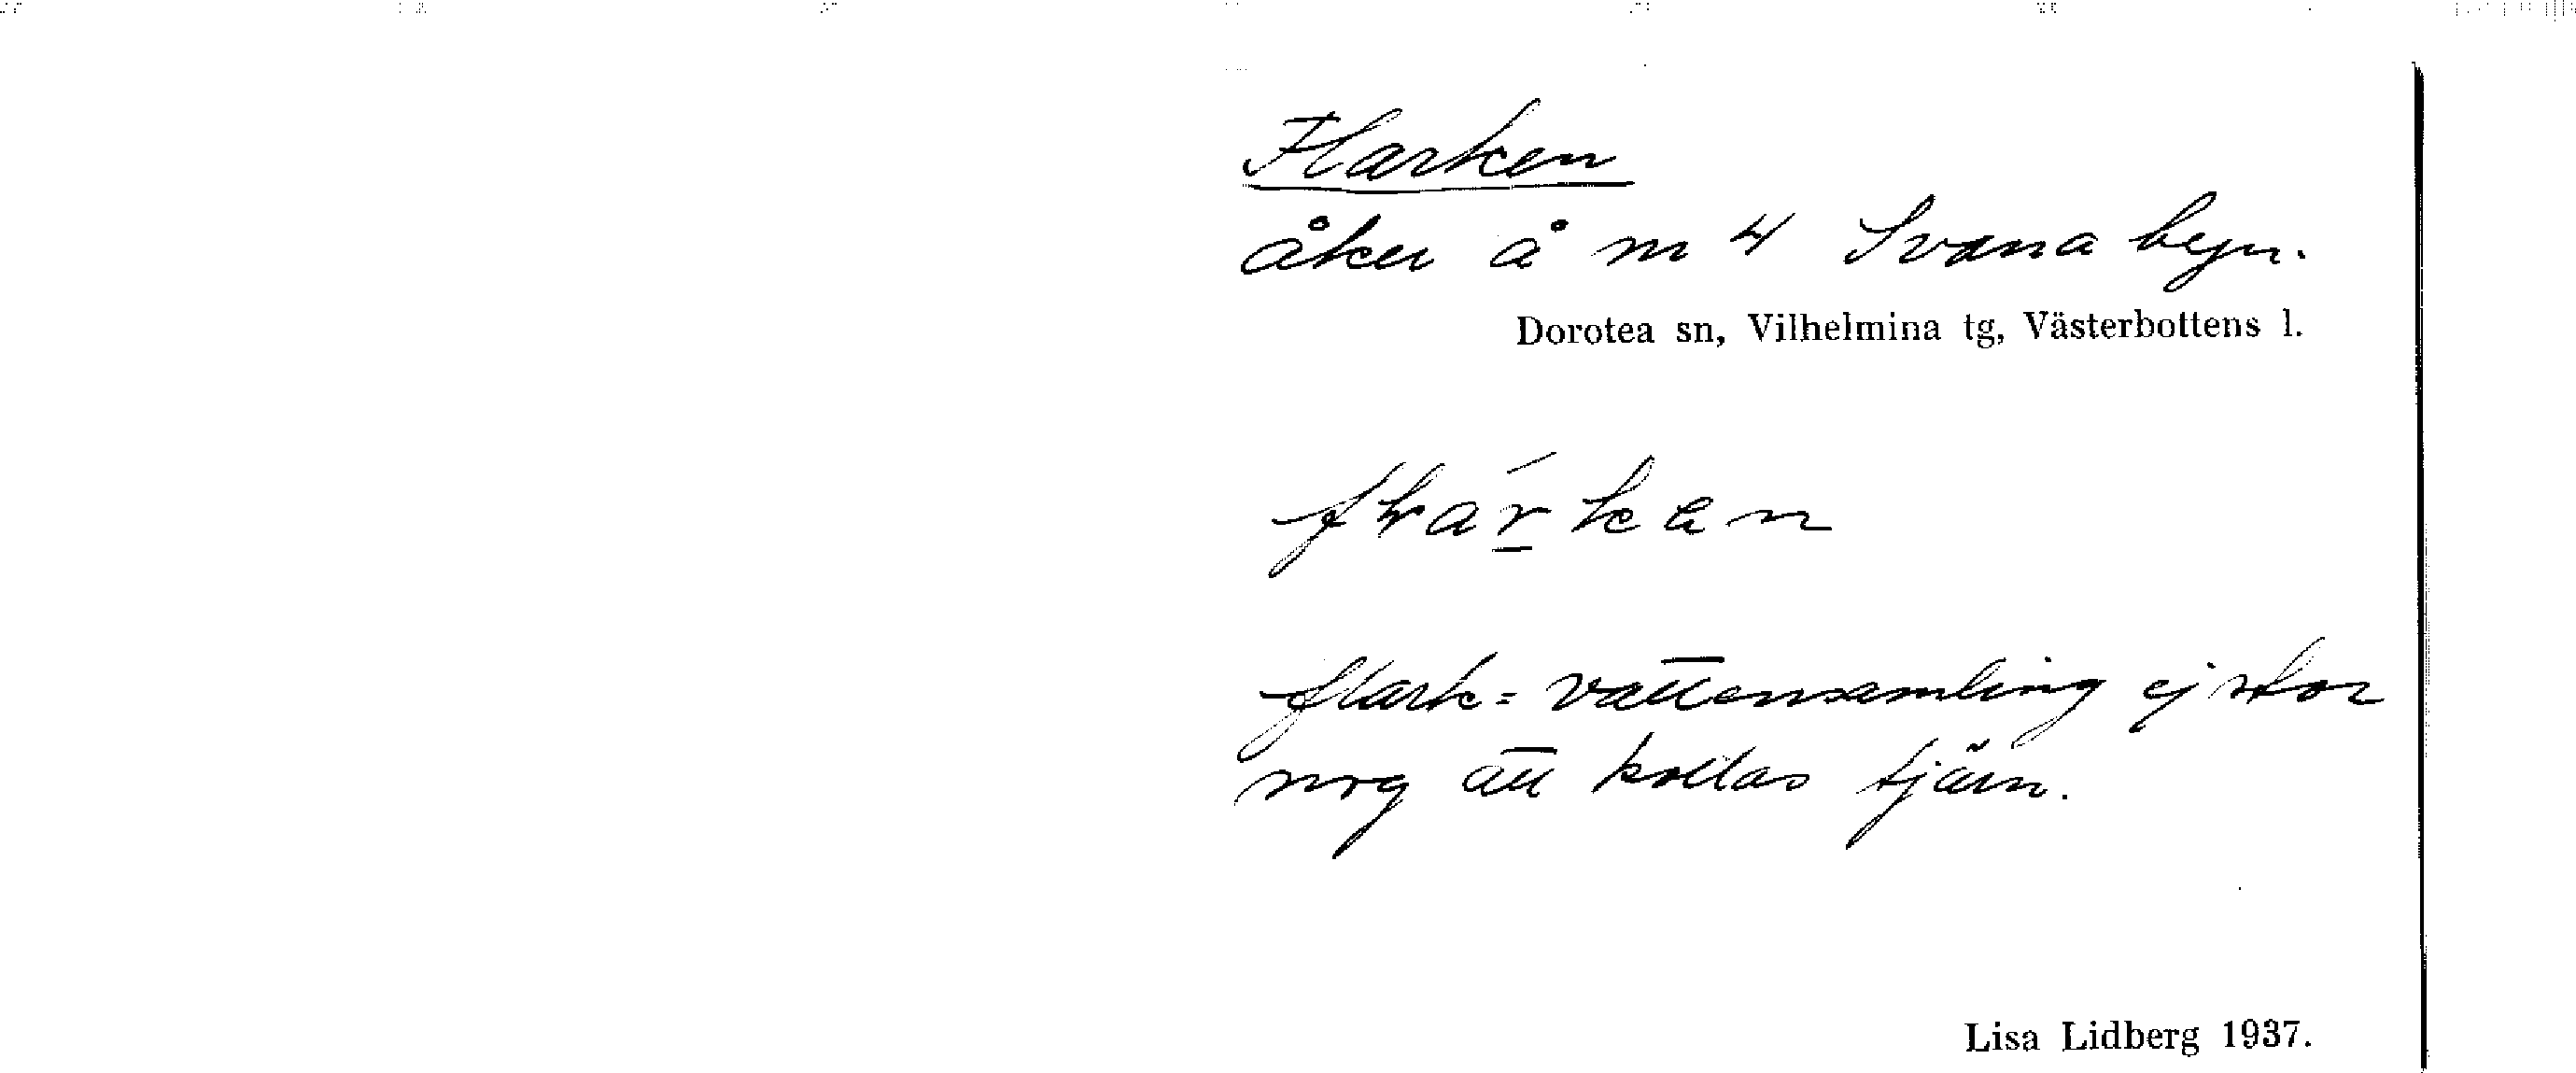 Flarken
åker å m 4 Svanabyn.
Dorotea sn, Vilhelmina tg, Västerbottens l.
flark = vattensamling ej stor
nog att kallas tjärn.
Lisa Lidberg 1937.